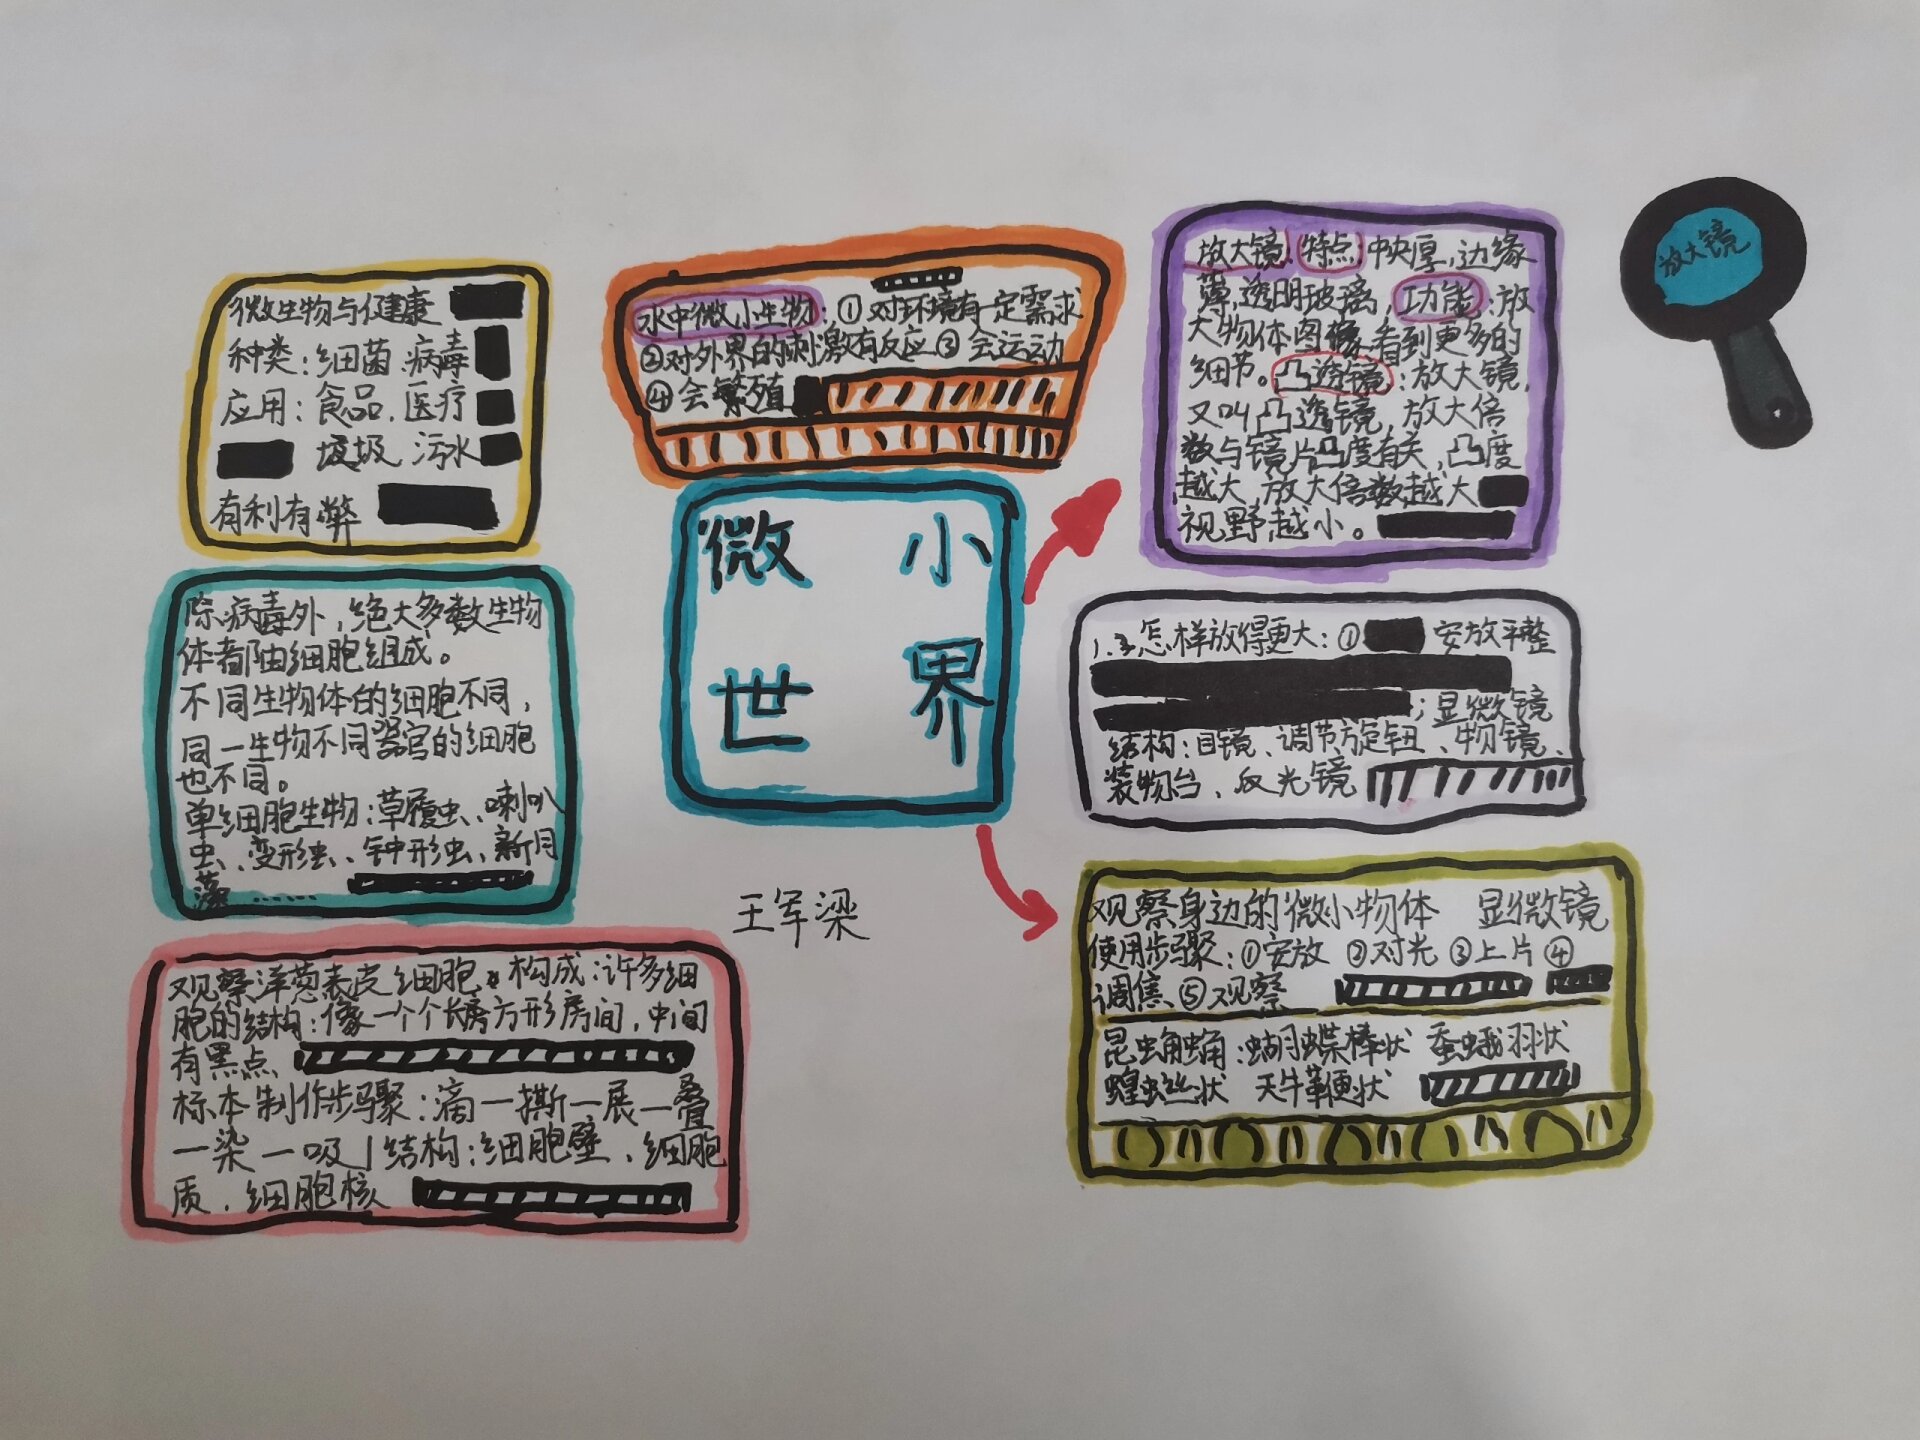 微小
世界
微生物与健康
种类：细菌.病毒
应用：食品.医疗
垃圾 污水
有利有弊
水中微小生物：①对环境有一定需求
②对外界的刺激有反应③会运动
④会繁殖
放大镜：特点：中央厚，边缘
薄，透明玻璃，功能：放
大物体图像，看到更多的
细节。凸透镜：放大镜，
又叫凸透镜，放大倍
数与镜片凸度有关，凸度
越大，放大倍数越大
视野越小。
放大镜
除病毒外，绝大多数生物
体都由细胞组成。
不同生物体的细胞不同，
同一生物不同器官的细胞
也不同。
单细胞生物：草履虫、喇叭
虫、变形虫、钟形虫、新月
藻……
怎样放得更大：① 安放平整
；显微镜
结构：目镜、调节旋钮、物镜、
装物台、反光镜
王军梁
观察身边的微小物体 显微镜
使用步骤：①安放 ②对光 ③上片 ④
调焦 ⑤观察
昆虫触角：蝴蝶棒状 蚕蛾羽状
蝗虫丝状 天牛鞭状
观察洋葱表皮细胞 构成：许多细
胞的结构：像一个个长方形房间，中间
有黑点
标本制作步骤：滴一撕一展一叠
一染一吸 结构：细胞壁、细胞
质、细胞核